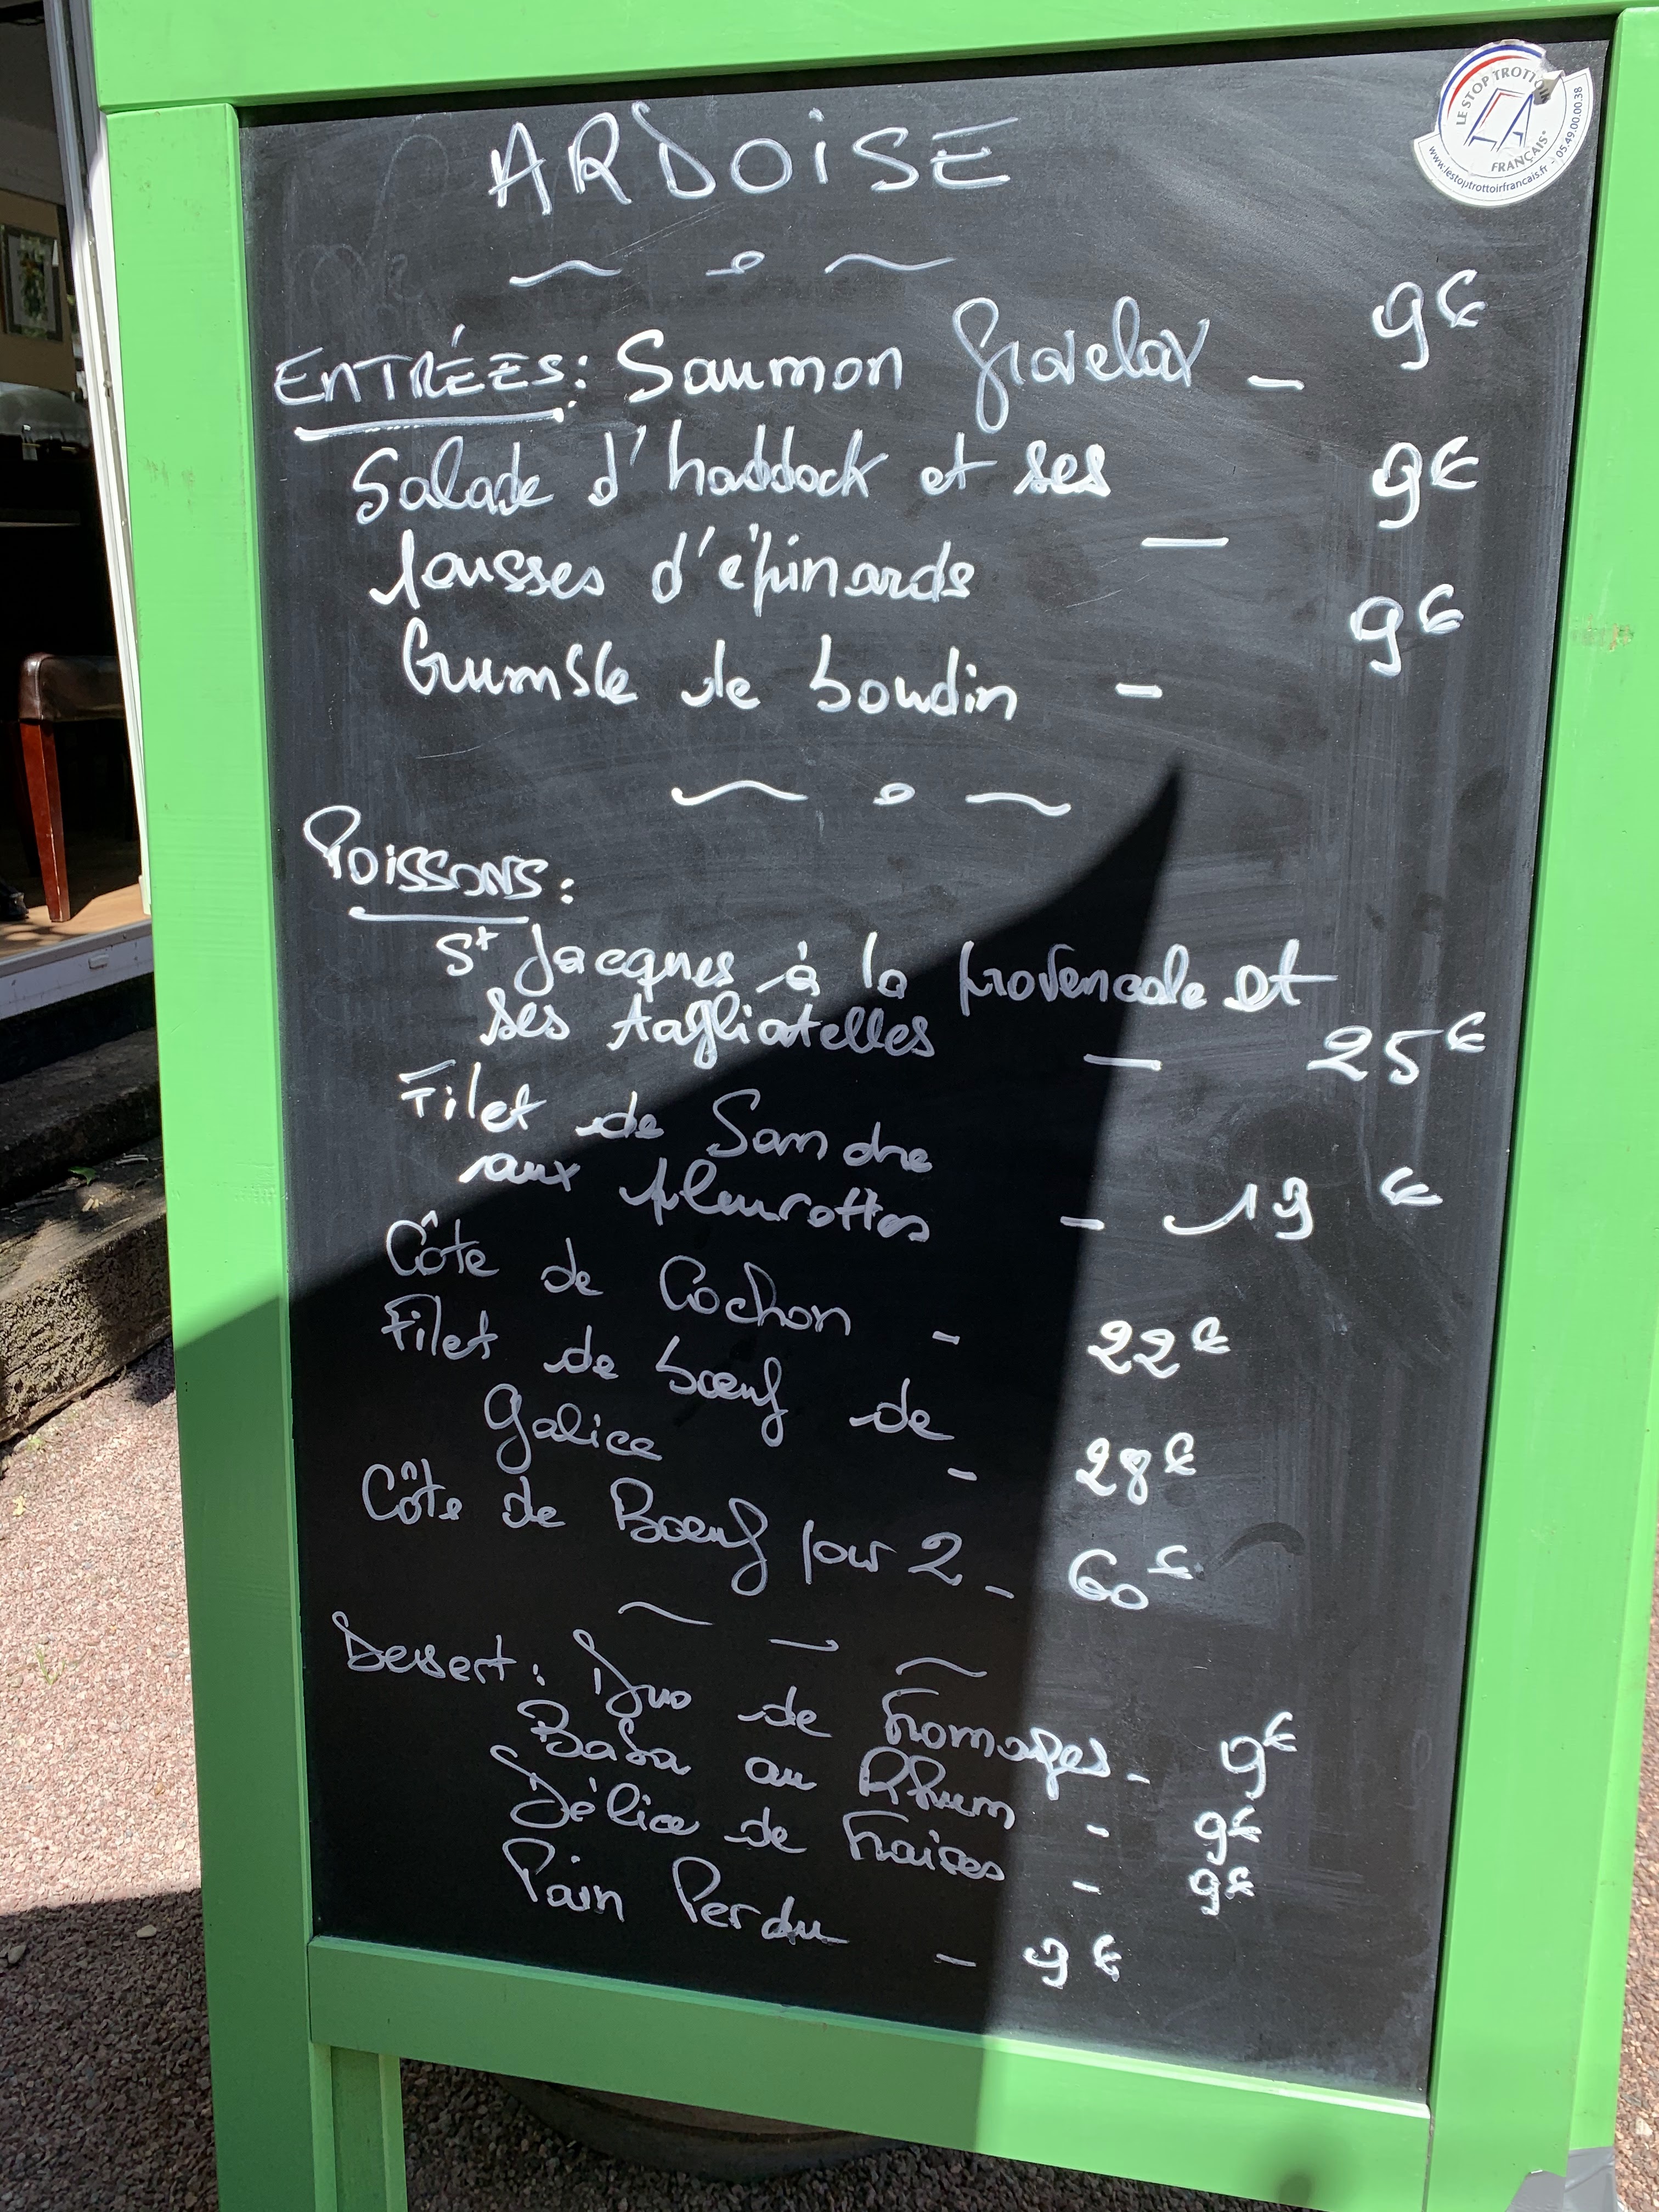 LE STOP TROTTOIR
FRANÇAIS
www.lestoptrottoirfrancais.fr - 05.49.00.00.38
ARDOISE
ENTRÉES: Saumon Gravelax - 9€
Salade d'haddock et ses
pousses d'épinards - 9€
Crumble de boudin - 9€
POISSONS:
St Jacques à la provencale et
ses tagliatelles - 25€
Filet de Sandre
aux pleurottes - 19 €
Côte de Cochon - 22€
Filet de bœuf de
Galice - 28€
Côte de Bœuf pour 2 - 60€
Dessert: Duo de Fromages - 9€
Baba au Rhum - 9€
Délice de Fraises - 9€
Pain Perdu - 9€